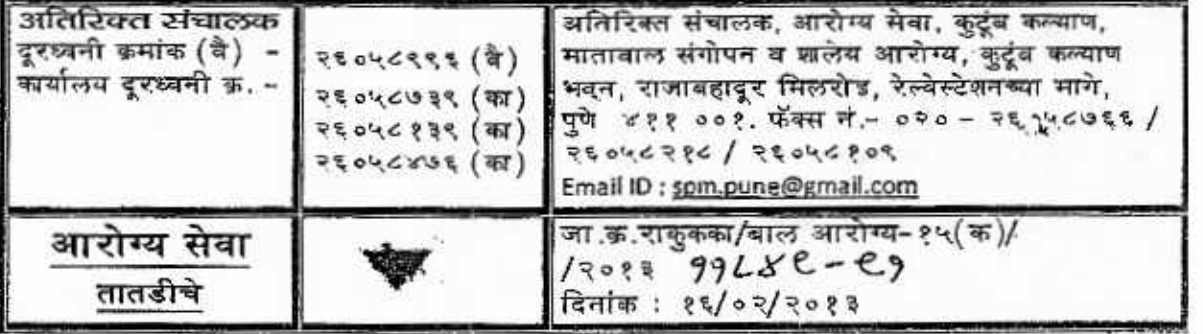 अतिरिक्त संचालक
दूरध्वनी क्रमांक (वै) -
कार्यालय दूरध्वनी क्र. -
२६०५८९९६ (वै)
२६०५८७३९ (का)
२६०५८१३९ (का)
२६०५८४७६ (का)
अतिरिक्त संचालक, आरोग्य सेवा, कुटूंब कल्याण,
माताबाल संगोपन व शालेय आरोग्य, कुटूंब कल्याण
भवन, राजाबहादूर मिलरोड, रेल्वेस्टेशनच्या मागे,
पुणे ४११ ००१. फॅक्स नं.- ०२० -
२६०५८२१८ / २६०५८१०९
Email ID : spm.pune@gmail.com
आरोग्य सेवा
तातडीचे
जा.क्र.राकुकका/बाल आरोग्य-१५(क)/
/२०१३ ११८४९-९१
दिनांक : १६/०२/२०१३